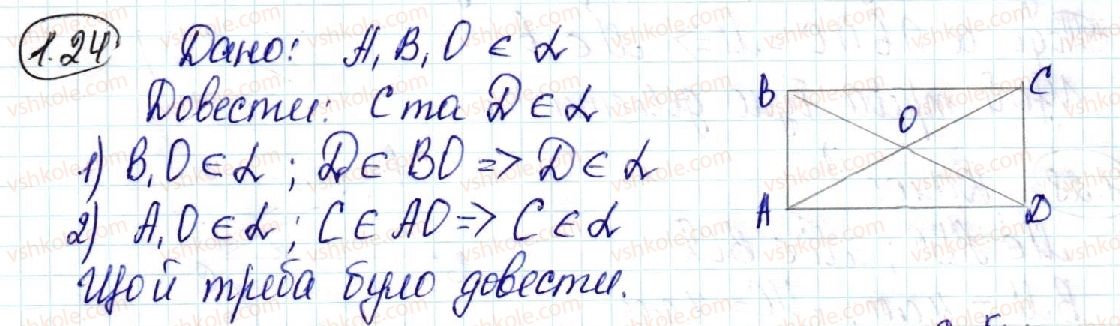 1.24 Дано: А, В, О ∈ α
Довести: С та D ∈ α
1) В, О ∈ α; D ∈ ВО => D ∈ α
2) А, О ∈ α; С ∈ АО => С ∈ α
Щой треба було довести.
B C
O
A D
vshkole.com